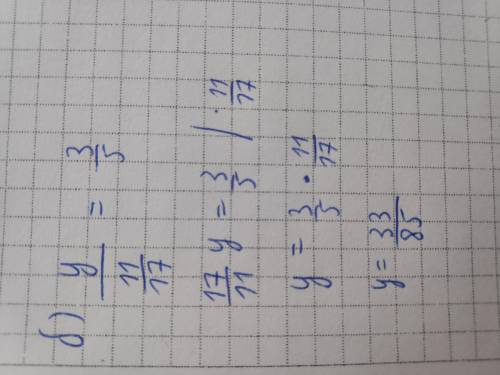 б) y / (11/17) = 3/5
17/11 y = 3/5 | · 11/17
y = 3/5 · 11/17
y = 33/85